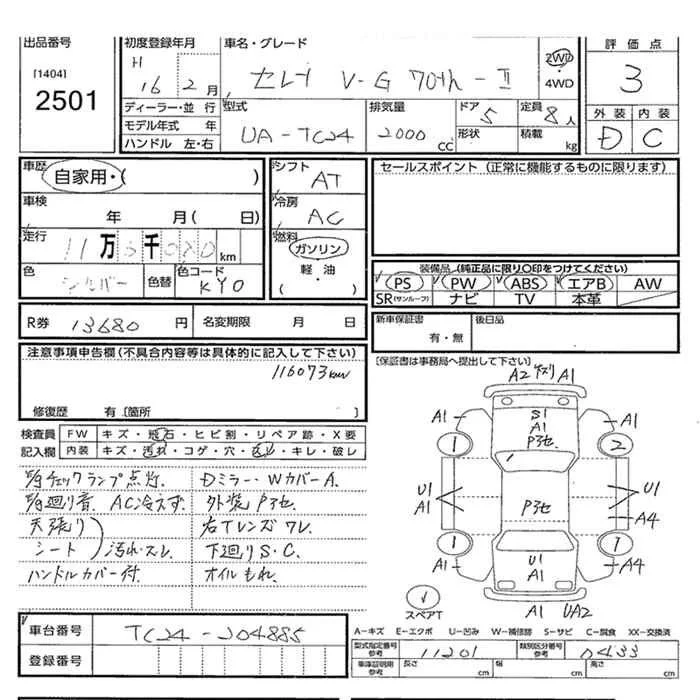 出品番号
[1404]
2501
初度登録年月
H 16 2月
ディーラー・並行
モデル年式 年
ハンドル 左・右
車名・グレード
セレナ V-G 70th-Ⅱ
2WD
・
4WD
型式
UA-TC24
排気量
2000 cc
ドア 5
形状
定員 8人
積載 kg
評価点
3
外装 内装
D C
車歴 自家用・( )
車検 年 月( 日)
走行 11万 6千 0 0 km
色 シルバー 色替 色コード KY0
シフト AT
冷房 AC
燃料 ガソリン
軽・油
( )
セールスポイント (正常に機能するものに限ります)
装備品 (純正品に限り○印をつけてください)
PS PW ABS エアB AW
SR(サンルーフ) ナビ TV 本革
R券 13680 円 名変期限 月 日
新車保証書 有・無 後日品
[保証書は事務局へ提出して下さい]
注意事項申告欄(不具合内容等は具体的に記入して下さい)
116073km
修復歴 有〔箇所 〕
検査員 FW キズ・飛石・ヒビ割・リペア跡・X要
記入欄 内装 キズ・汚れ・コゲ・穴・スレ・キレ・破レ
E/gチェックランプ点灯. Dミラー・WカバーA.
E/g廻り音. AC冷えず. 外装Pヌセ.
天張り 右Tレンズワレ.
シート 汚れ・スレ. 下廻りS・C.
ハンドルカバー付. オイルもれ.
A2 A1
A1 S1 A1
A1 Pヌセ
1 2
U1 Pヌセ U1
A1 A4
1 1
A1 U1 A4
A1
スペアT
A1 UA2
車台番号 TC24-204885
登録番号
A-キズ E-エクボ U-凹み W-補修跡 S-サビ C-腐食 XX-交換済
型式指定番号 参考 11201 類別区分番号 参考 0433
車庫証明用 参考 長さ cm 幅 cm 高さ cm